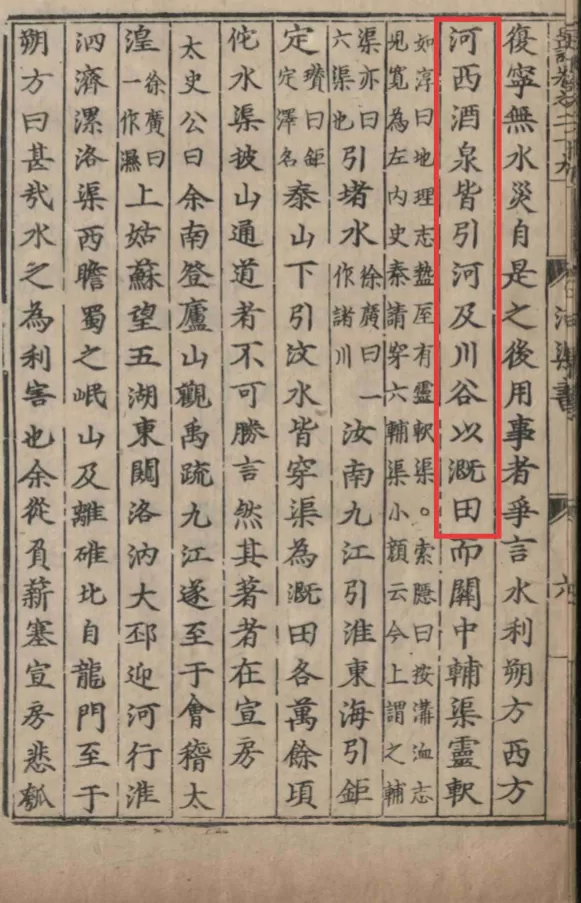 史記卷二十九 河渠書 六
復寧無水災自是之後用事者爭言水利朔方西方
河西酒泉皆引河及川谷以溉田而關中輔渠靈軹
如淳曰地理志盩厔有靈軹渠。索隱曰按溝洫志
兒寬為左內史奏請穿六輔渠小顏云今上謂之輔
渠亦曰六渠也引堵水徐廣曰一作諸川汝南九江引淮東海引鉅
定瓚曰鉅定澤名泰山下引汶水皆穿渠為溉田各萬餘頃
佗水渠披山通道者不可勝言然其著者在宣房
太史公曰余南登廬山觀禹疏九江遂至于會稽太
湟徐廣曰一作濕上姑蘇望五湖東闚洛汭大邳迎河行淮
泗濟漯洛渠西瞻蜀之岷山及離碓北自龍門至于
朔方曰甚哉水之為利害也余從負薪塞宣房悲瓠